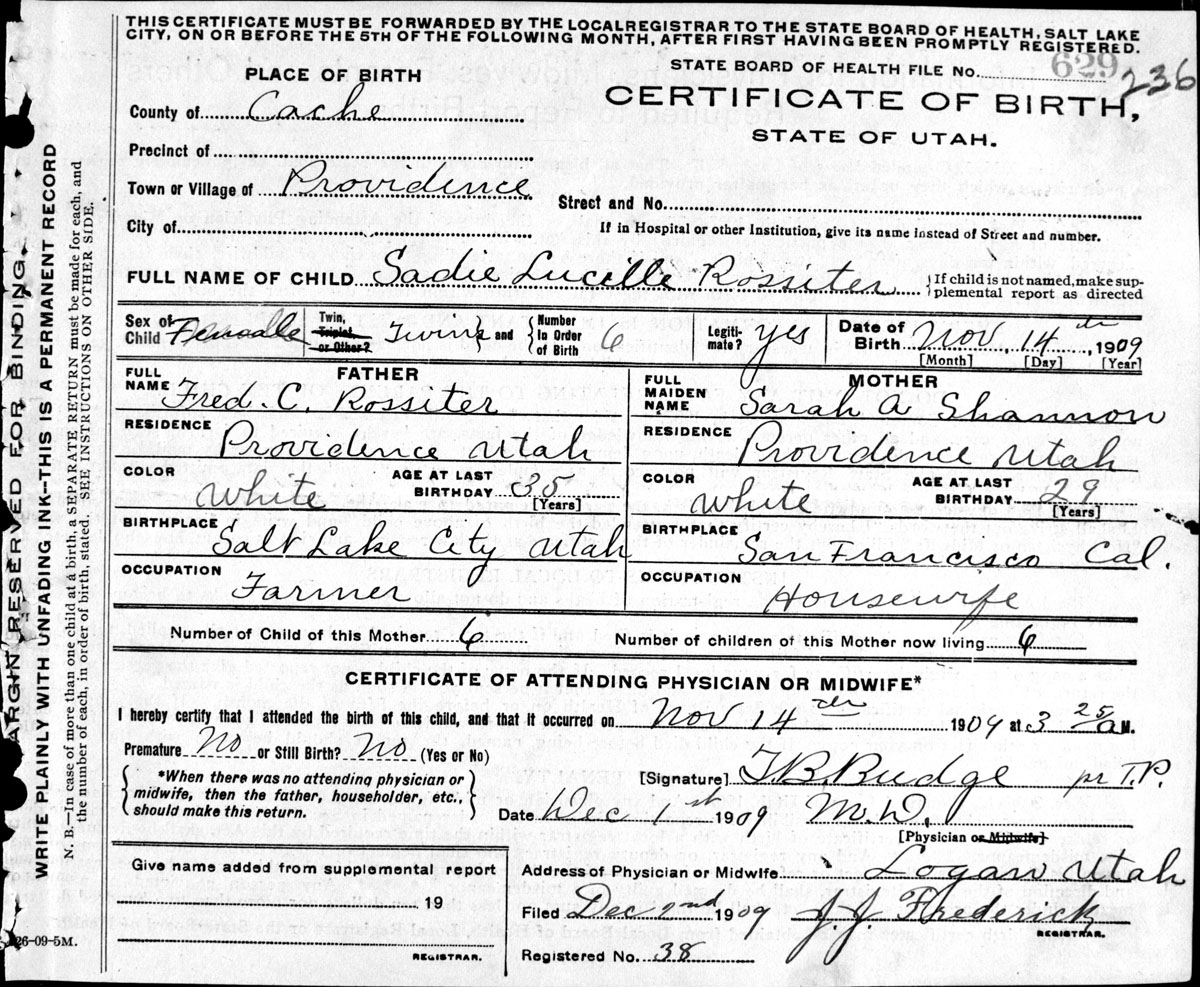 THIS CERTIFICATE MUST BE FORWARDED BY THE LOCALREGISTRAR TO THE STATE BOARD OF HEALTH, SALT LAKE
CITY, ON OR BEFORE THE 5TH OF THE FOLLOWING MONTH, AFTER FIRST HAVING BEEN PROMPTLY REGISTERED.
STATE BOARD OF HEALTH FILE NO. 629 236
PLACE OF BIRTH
CERTIFICATE OF BIRTH,
STATE OF UTAH.
County of Cache
Precinct of
Town or Village of Providence
Street and No.
City of
If in Hospital or other Institution, give its name instead of Street and number.
FULL NAME OF CHILD Sadie Lucille Rossiter {If child is not named, make sup-
plemental report as directed
Sex of Child Female
Twin, Triplet, or Other? Twins and {Number In Order of Birth 6
Legiti-mate? yes
Date of Birth Nov. 14th, 1909
[Month] [Day] [Year]
FATHER
FULL NAME Fred. C. Rossiter
MOTHER
FULL MAIDEN NAME Sarah A Shannon
RESIDENCE Providence Utah
RESIDENCE Providence Utah
COLOR White AGE AT LAST BIRTHDAY 35 [Years]
COLOR White AGE AT LAST BIRTHDAY 29 [Years]
BIRTHPLACE Salt Lake City Utah
BIRTHPLACE San Francisco Cal.
OCCUPATION Farmer
OCCUPATION Housewife
Number of Child of this Mother 6 Number of children of this Mother now living 6
CERTIFICATE OF ATTENDING PHYSICIAN OR MIDWIFE*
I hereby certify that I attended the birth of this child, and that it occurred on Nov 14th 1909 at 3 25 a M.
Premature No or Still Birth? No (Yes or No)
{*When there was no attending physician or
midwife, then the father, householder, etc.,
should make this return.}
[Signature] T.B. Budge pr T.P.
Date Dec 1st 1909 M.D.
[Physician or Midwife]
Give name added from supplemental report
19
REGISTRAR.
Address of Physician or Midwife Logan Utah
Filed Dec 2nd 1909 J.J Frederick
REGISTRAR.
Registered No. 38
26-09-5M.
MARGIN RESERVED FOR BINDING.
WRITE PLAINLY WITH UNFADING INK—THIS IS A PERMANENT RECORD
N. B.—In case of more than one child at a birth, a SEPARATE RETURN must be made for each, and
the number of each, in order of birth, stated. SEE INSTRUCTIONS ON OTHER SIDE.